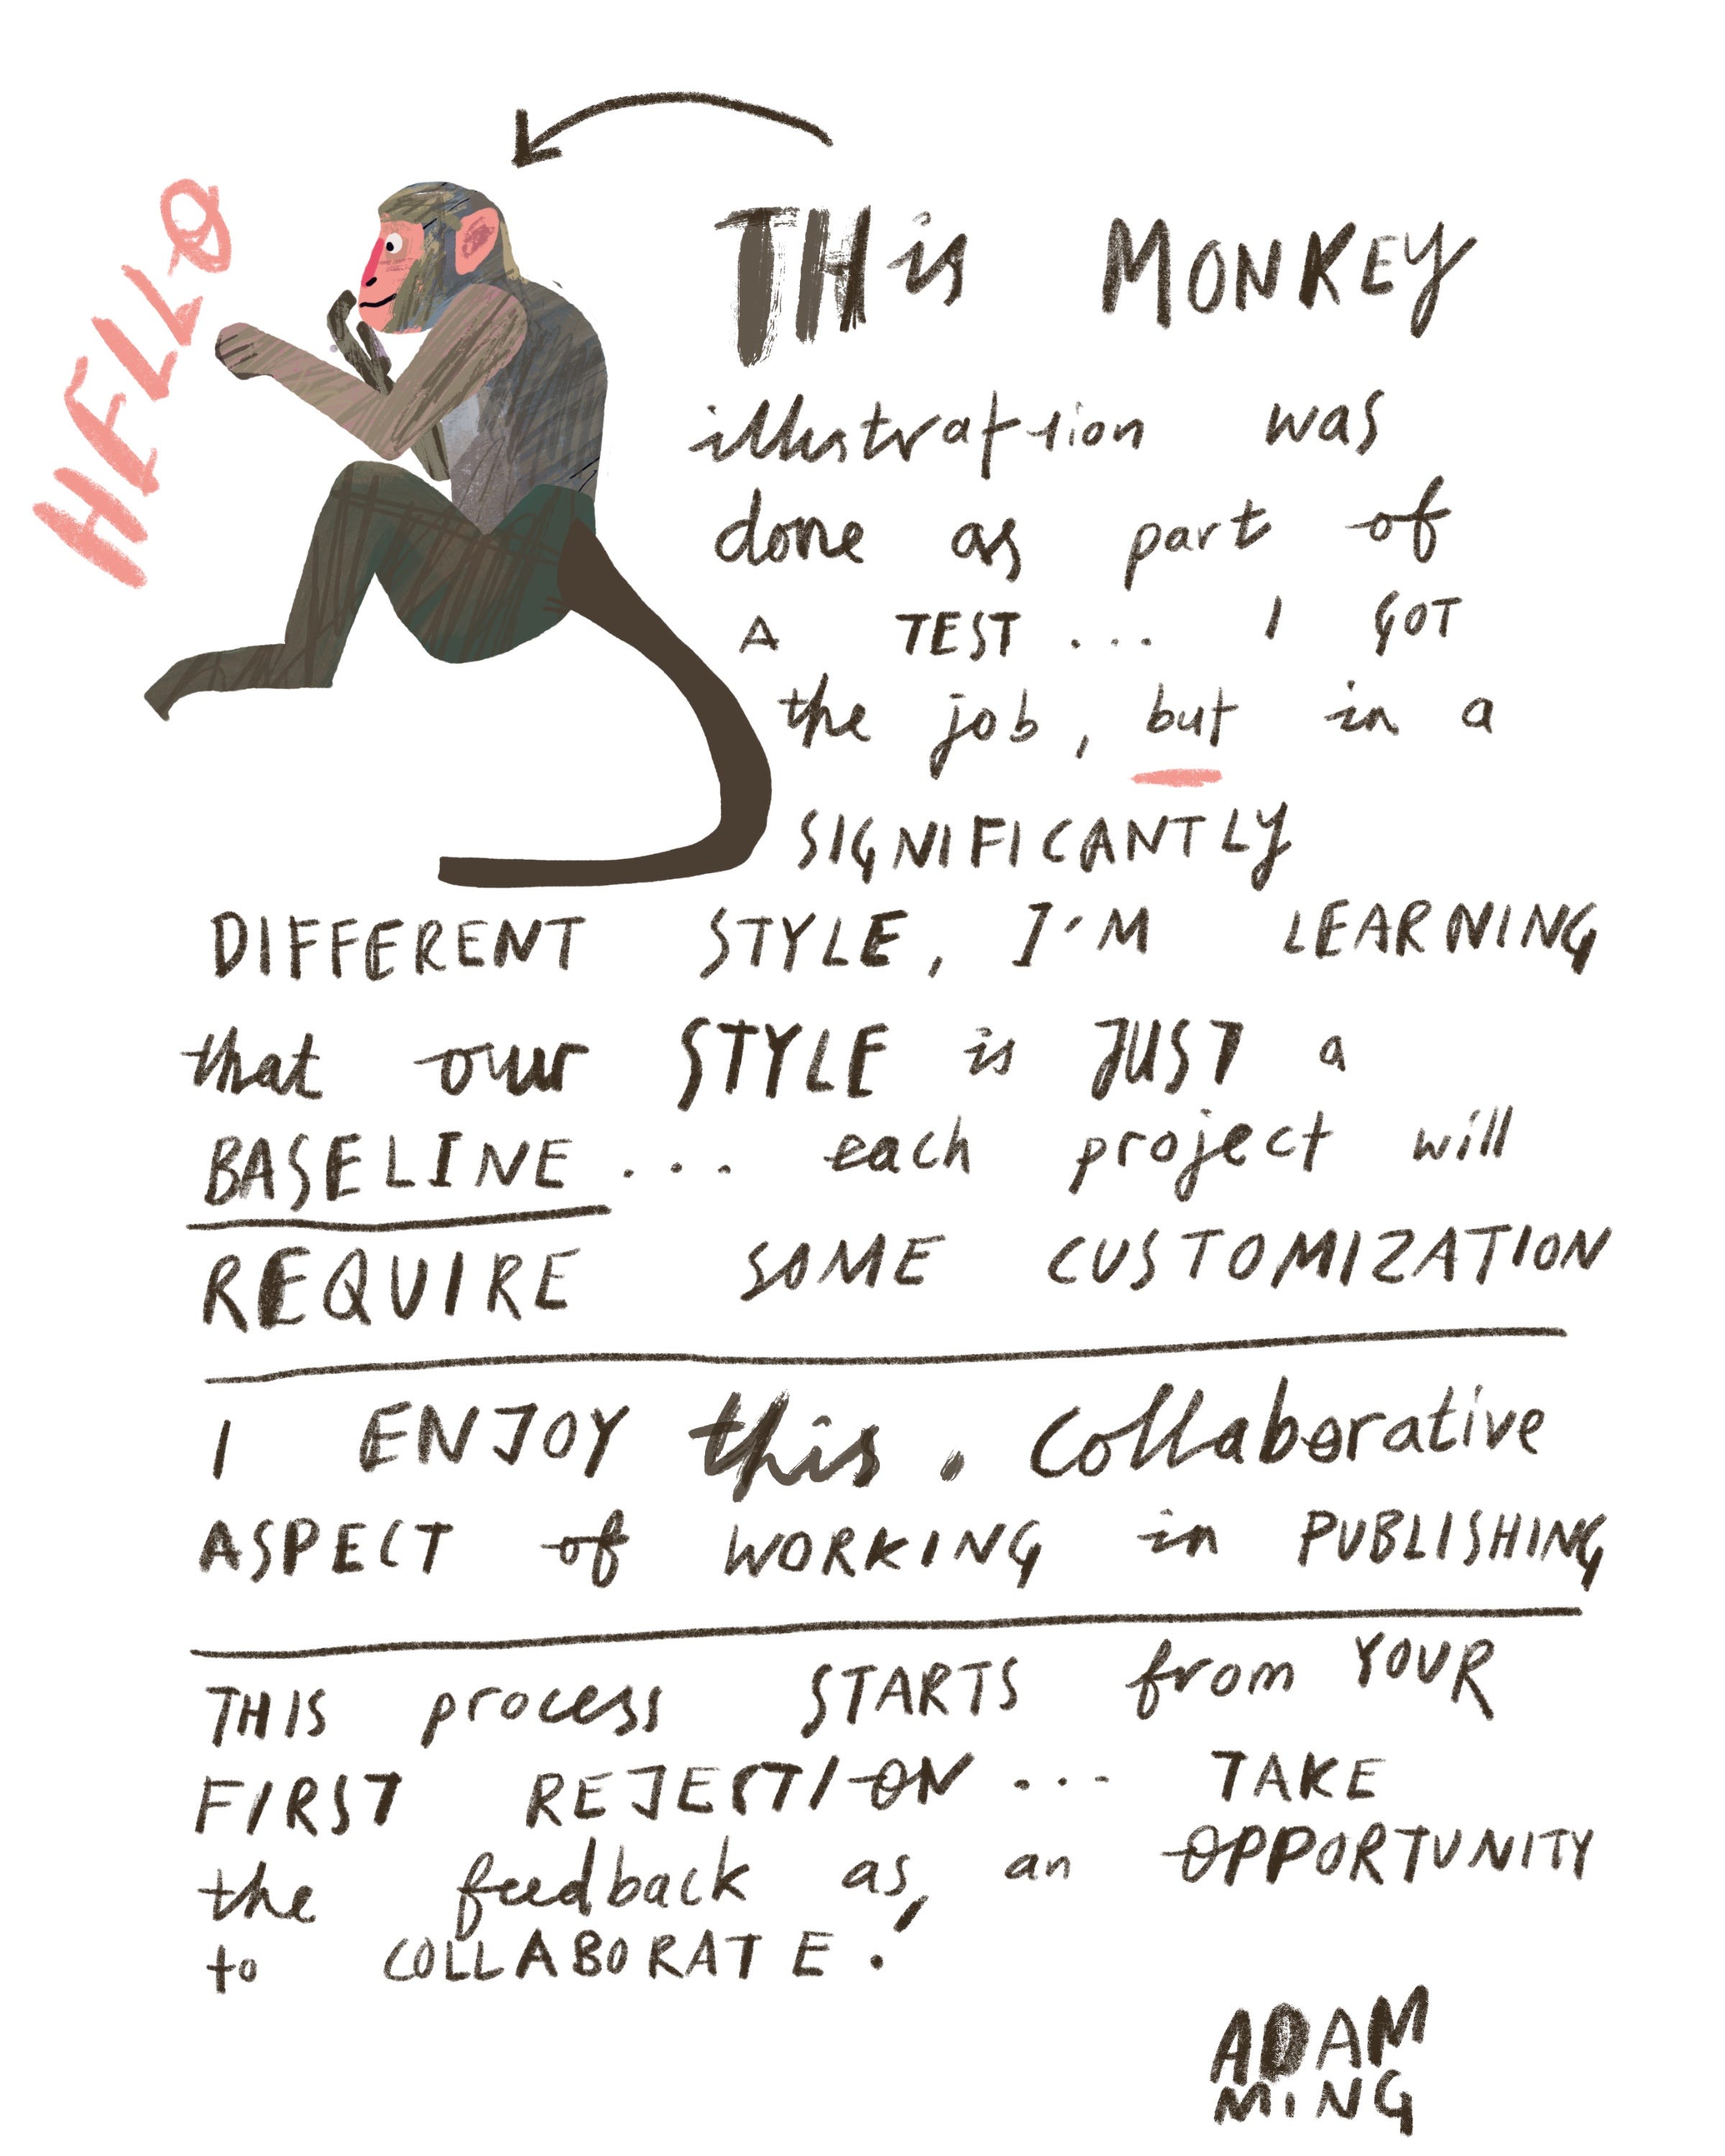 HELLO
THis MONKEY
illustration was
done as part of
A TEST... I GOT
the job, but in a
SIGNIFICANTLY
DIFFERENT STYLE, I'M LEARNING
that our STYLE is JUST a
BASELINE... each project will
REQUIRE SOME CUSTOMIZATION
I ENJOY this. Collaborative
ASPECT of WORKING in PUBLISHING
THIS process STARTS from YOUR
FIRST REJECTION... TAKE
the feedback as, an OPPORTUNITY
to COLLABORATE!
ADAM
MING